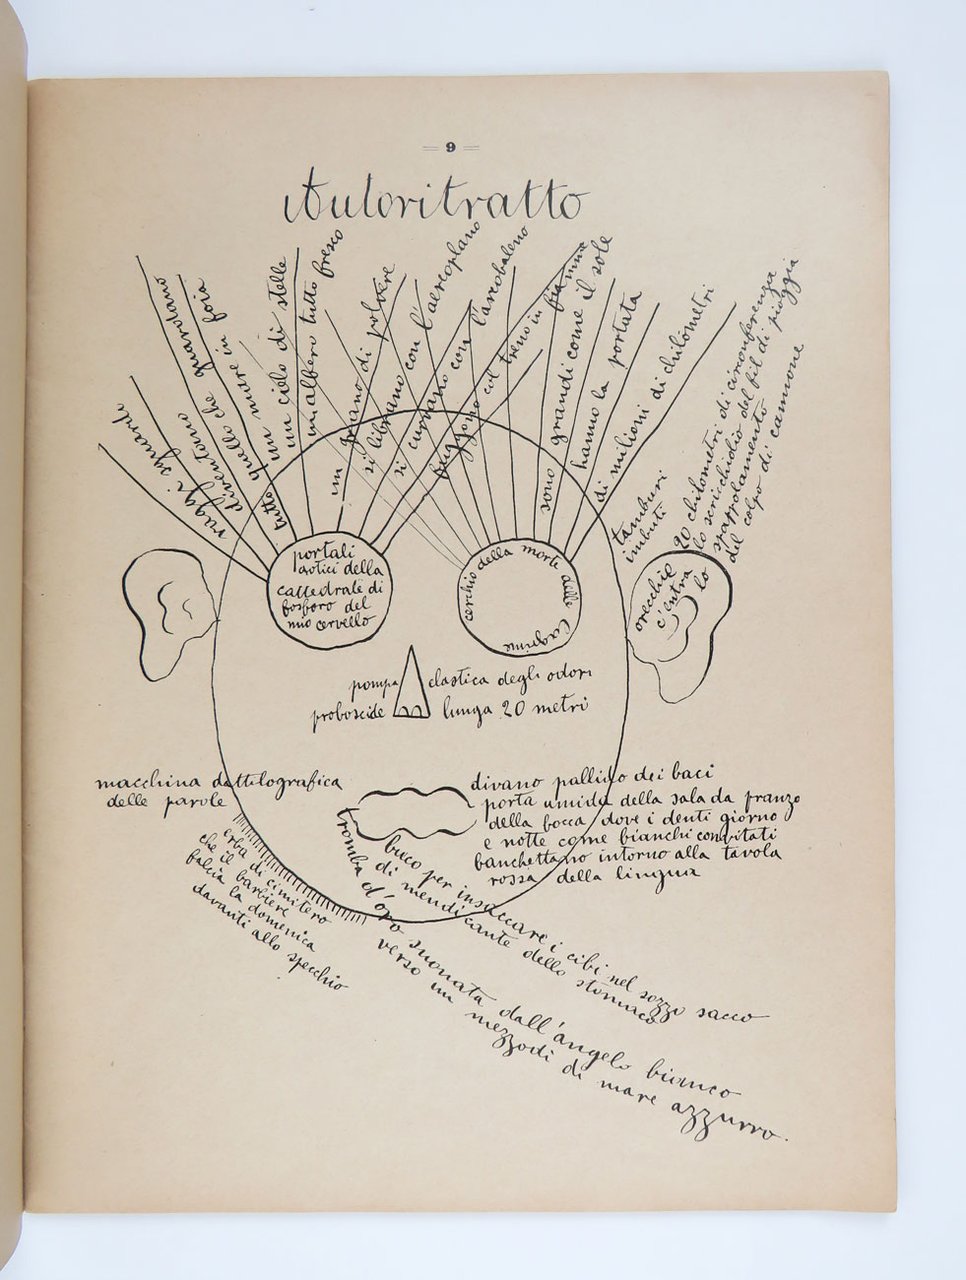 9
Autoritratto
raggi sguardi
diventano
tutto quello che guardano
un mare in foia
un cielo di stelle
un albero tutto fresco
un grano di polvere
si librano con l'aereoplano
si curvano con l'arcobaleno
fuggono col treno in fiamma
sono grandi come il sole
hanno la portata
di milioni di chilometri
tamburi
imbuti
20 chilometri di circonferenza
lo scricchiolio del fil di pioggia
lo
del colpo di cannone
portali
gotici della
cattedrale di
fosforo del
mio cervello
cerchio della morte delle lagrime
orecchie
c'entra
lo
pompa elastica degli odori
proboscide lunga 20 metri
macchina dattilografica
delle parole
divano pallido dei baci
porta umida della sala da pranzo
della bocca dove i denti giorno
e notte come bianchi convitati
banchettano intorno alla tavola
rossa della lingua
erba di cimitero
che il barbiere
falcia la domenica
davanti allo specchio
buco per insaccare i cibi nel sozzo sacco
di mendicante dello stomaco
tromba d'oro suonata dall'angelo bianco
verso un mezzodì di mare azzurro.